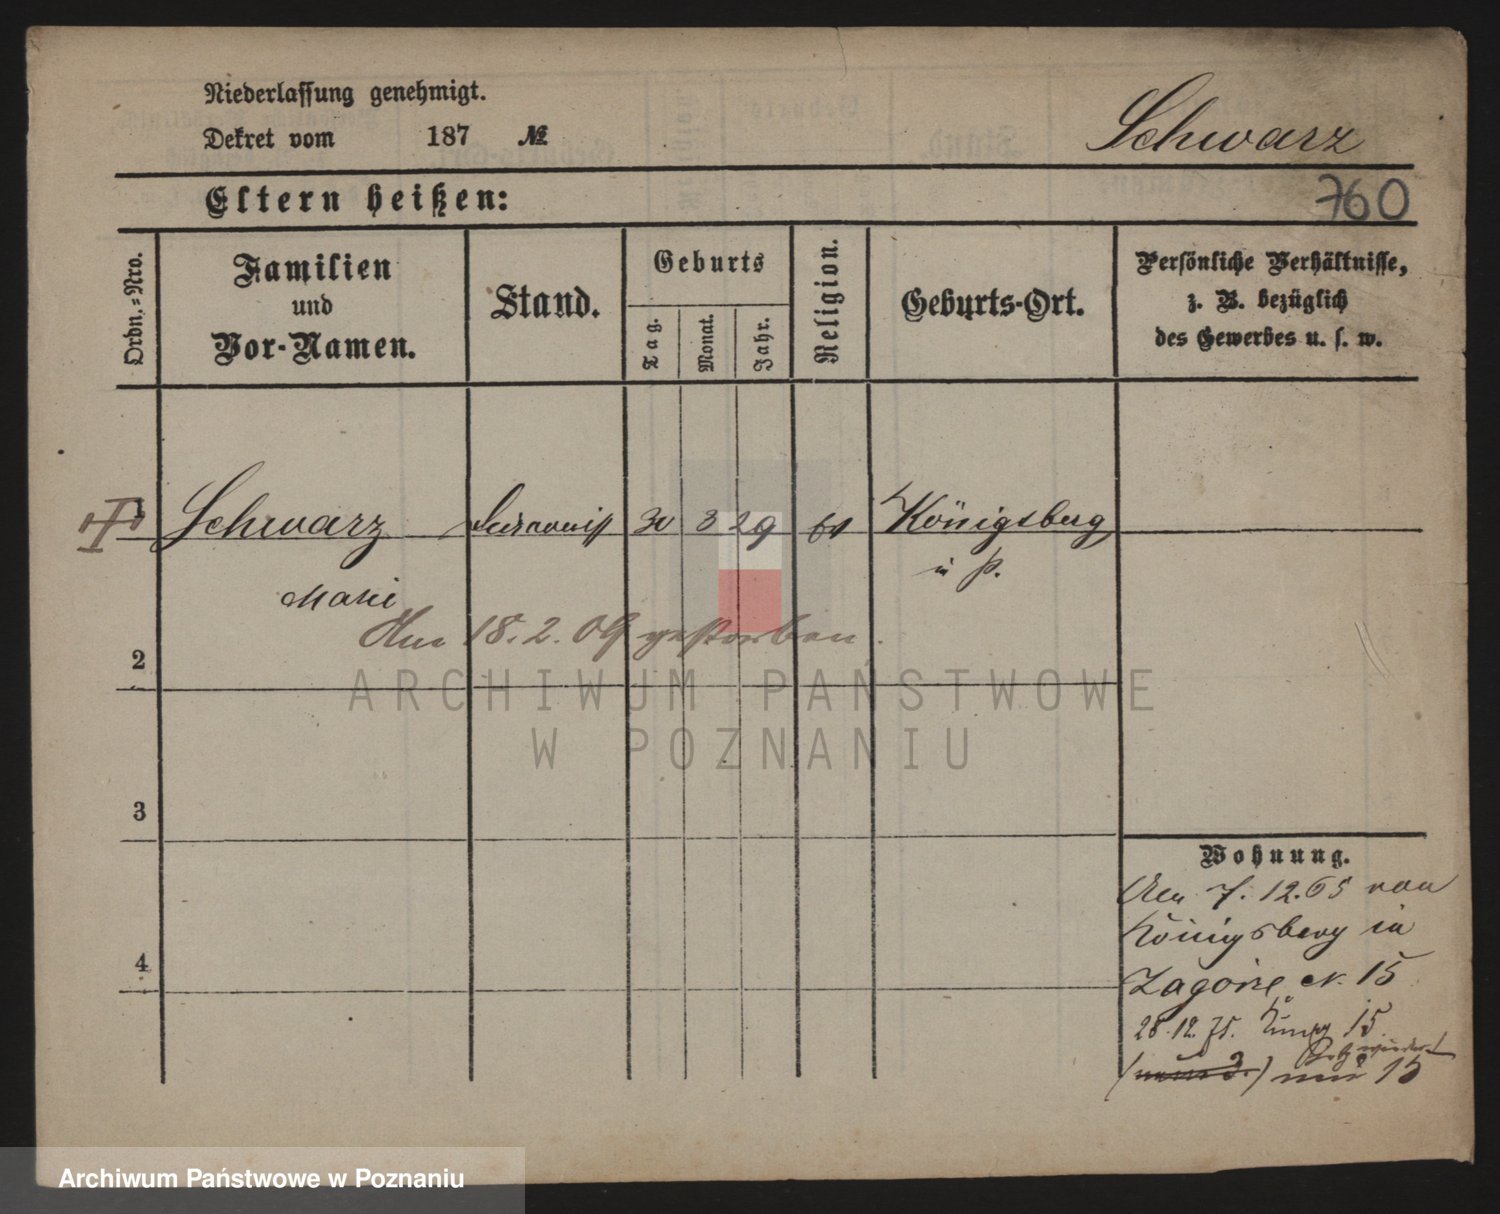 Niederlassung genehmigt.
Dekret vom 187 №
Schwarz
Eltern heißen:
760
Ordn.-Nro.
Familien
und
Vor-Namen.
Stand.
Geburts
Tag.
Monat.
Jahr.
Religion.
Geburts-Ort.
Persönliche Verhältnisse,
z. B. bezüglich
des Gewerbes u. s. w.
1
Schwarz 30 3 29 Königsberg
i P.
Marie
Am 18.2.09 gestorben.
2
ARCHIWUM PAŃSTWOWE
W POZNANIU
3
Wohnung.
Am 7.12.65 von
Königsberg in
Zagorze N. 15
4
28.12.75. 15.
15
Archiwum Państwowe w Poznaniu